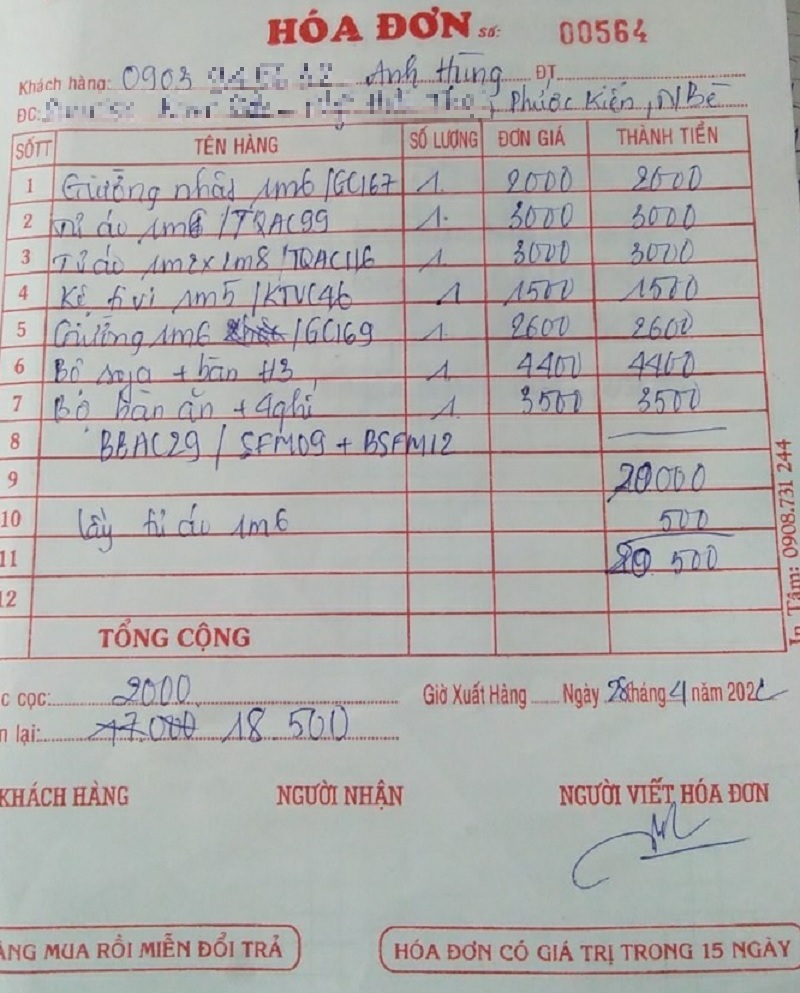 HÓA ĐƠN Số: 00564
Khách hàng: 0903 Anh Hùng ĐT
ĐC: Phước Kiển, N/Bè
SỐTT TÊN HÀNG SỐ LƯỢNG ĐƠN GIÁ THÀNH TIỀN
1 Giường nhật 1m6 /GC167 1. 2000 2000
2 Tủ áo 1m6 /TQAC99 1. 3000 3000
3 Tủ áo 1m2x1m8 /TQAC116 1. 3000 3000
4 Kệ ti vi 1m5 /KTVC46 1 1500 1500
5 Giường 1m6 /GC169 1. 2600 2600
6 Bộ sofa + bàn 1. 4400 4400
7 Bộ bàn ăn + 4ghế 1. 3500 3500
8 BBAC29 / SFM09 + BSFM12
9 20000
10 lấy tủ áo 1m6 500
11 20 500
12
TỔNG CỘNG
c cọc: 2000 Giờ Xuất Hàng Ngày 28 tháng 4 năm 202
n lại: 17.000 18 500
KHÁCH HÀNG NGƯỜI NHẬN NGƯỜI VIẾT HÓA ĐƠN
ÀNG MUA RỒI MIỄN ĐỔI TRẢ HÓA ĐƠN CÓ GIÁ TRỊ TRONG 15 NGÀY
In Tâm: 0908.731 244